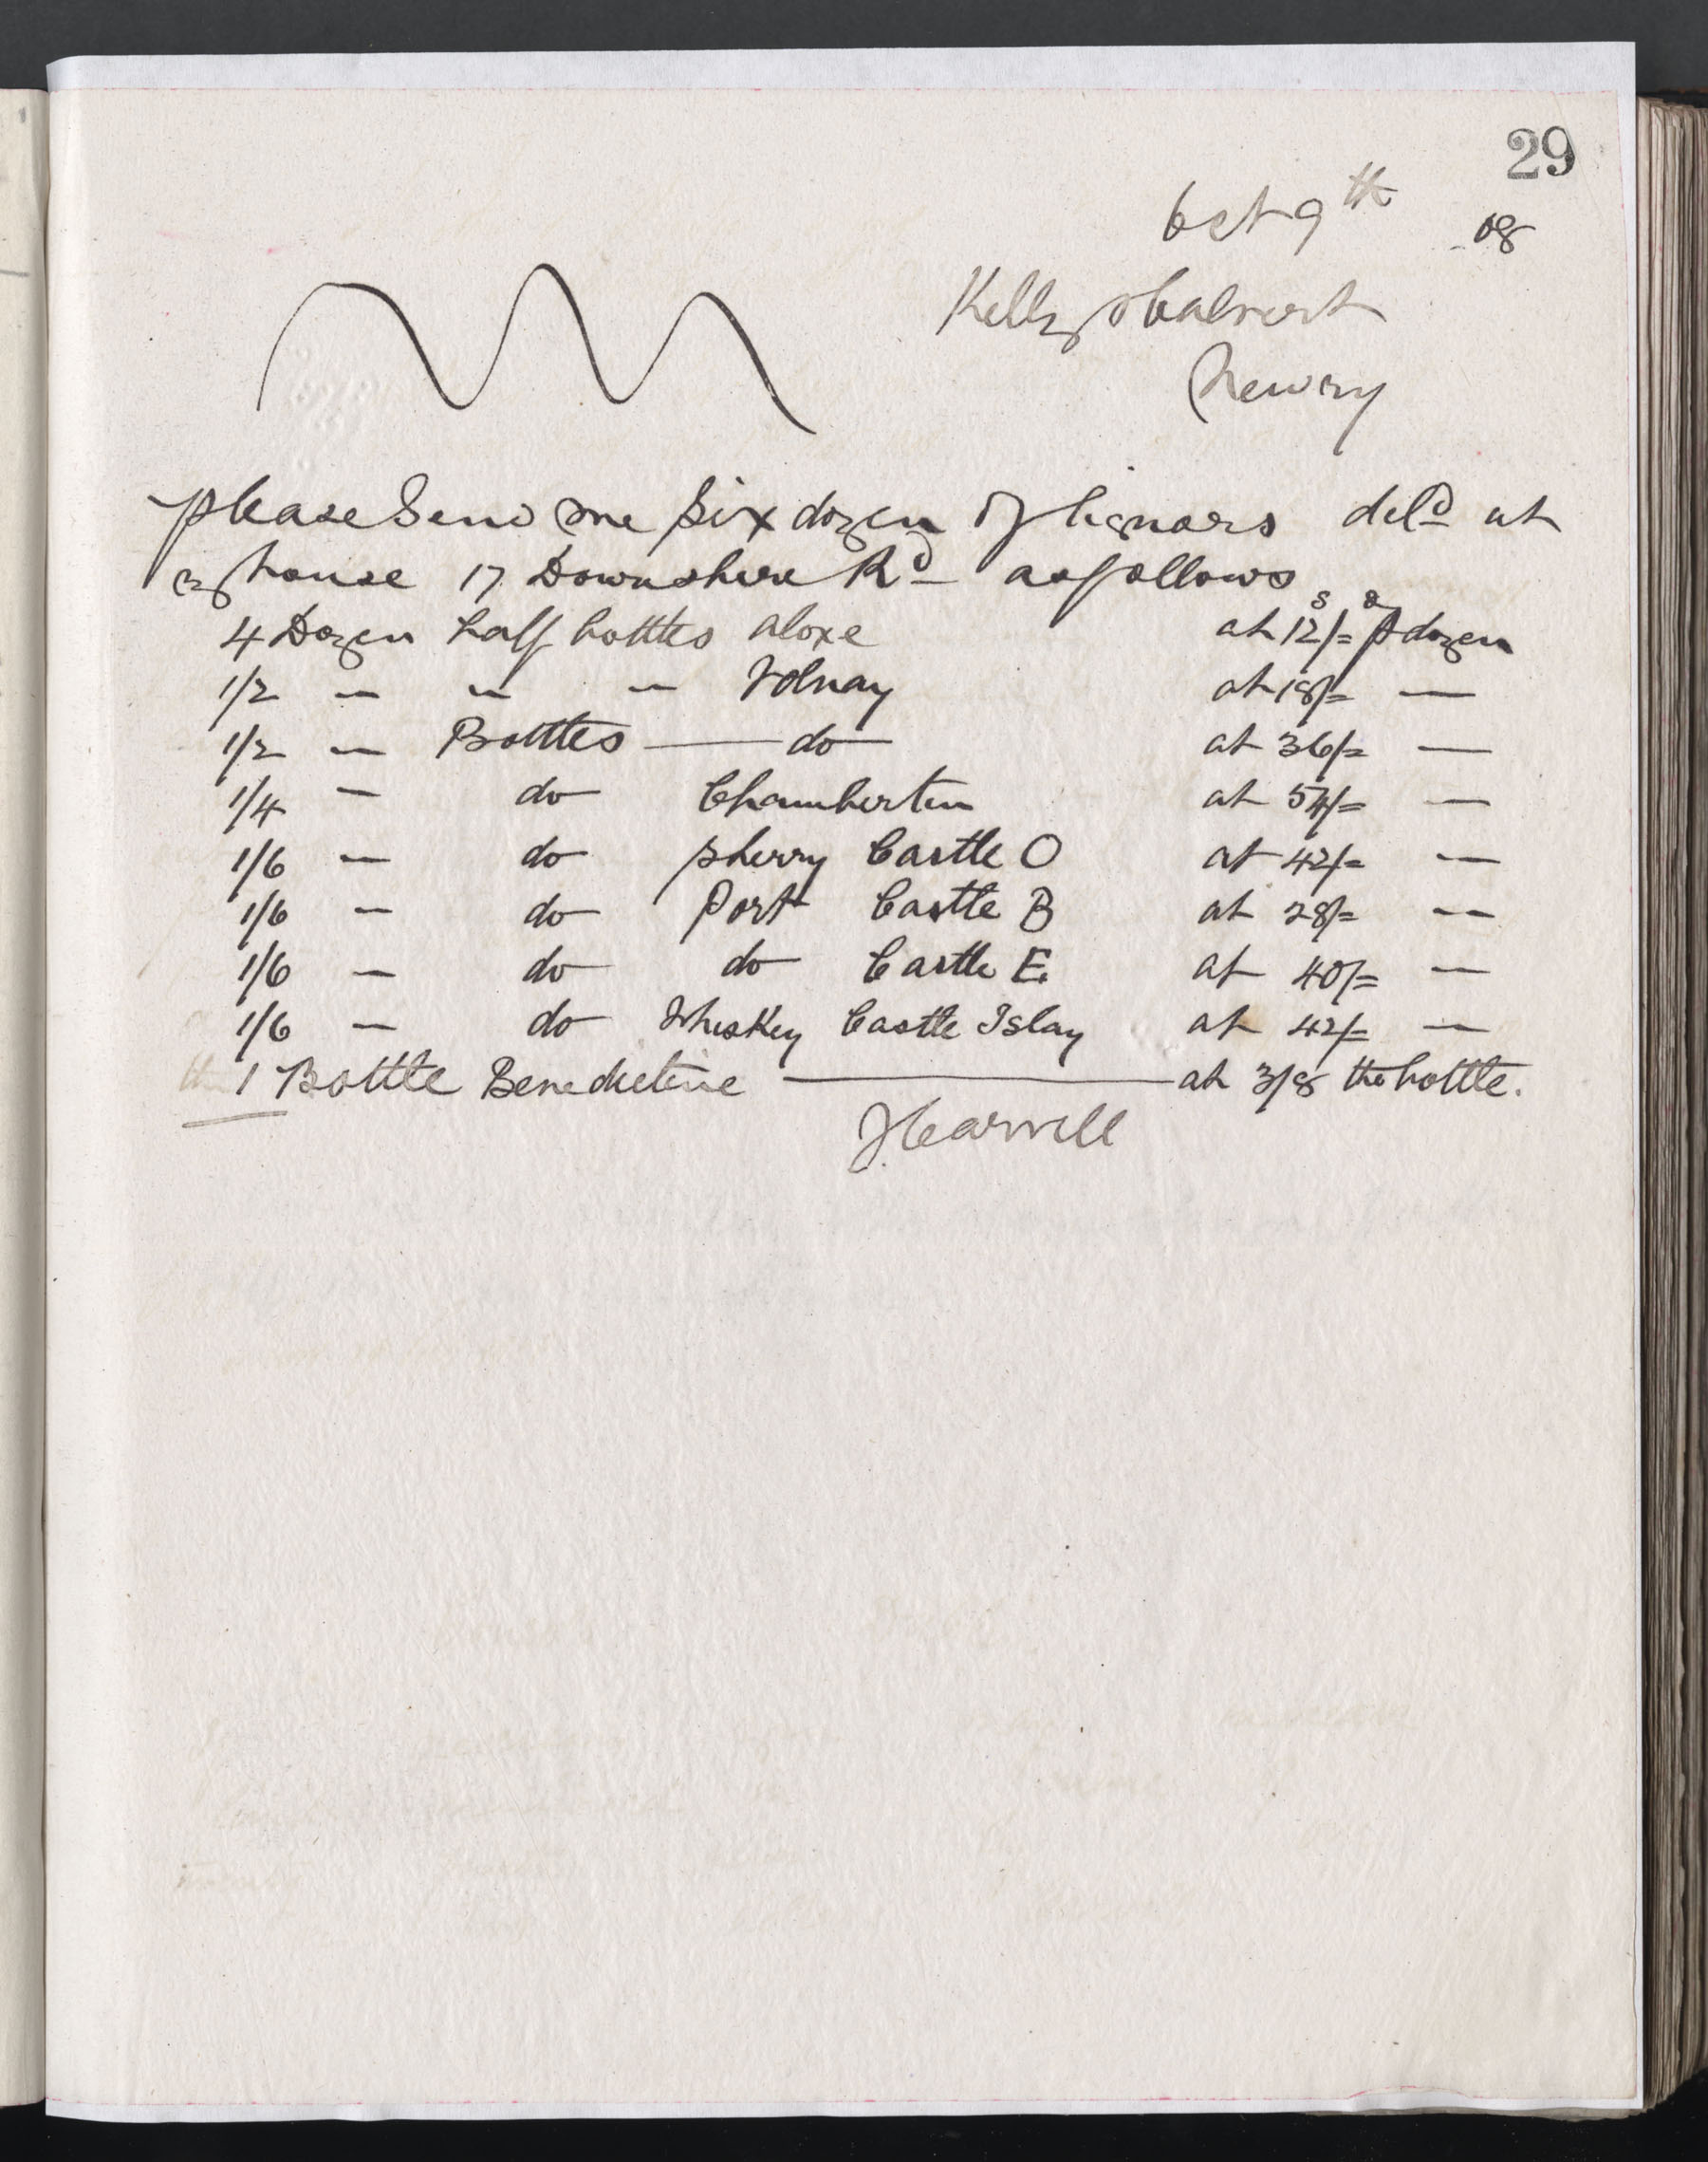 29
Oct 9th 08
Kelly & Calvert
Newry
please Send me Six dozen of liquors deld at
my house 17 Downshire Rd as follows
4 Dozen half bottles aloxe at 12s/=d p dozen
1/2 — " — Volnay at 18/= —
1/2 — Bottles — do at 36/= —
1/4 — do Chambertin at 54/= —
1/6 — do sherry Castle O at 42/= —
1/6 — do Port Castle B at 28/= —
1/6 — do do Castle E. at 40/= —
1/6 — do Whiskey Castle Islay at 42/= —
1 Bottle Benedictine — at 3/8 the bottle.
J Carvell